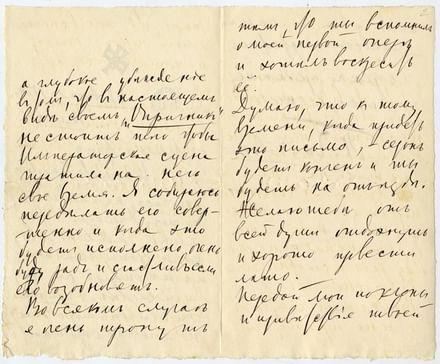 а глубокое убежде ние
въ том, что въ настоящемъ
видѣ своемъ „Опричникъ"
не стоитъ того чтобы
Императорская сцена
тратила на него
свое время. Я собираюсь
передѣлать его совер-
шенно и когда это
будетъ исполнено, очень
буду радъ и счастливъ если
его возобновятъ.
Во всякомъ случаѣ
я очень тронутъ
тѣмъ, что ты вспомнилъ
о моей первой оперѣ
и хотѣлъ воскресить
ее.
Думаю, что къ тому
времени, когда придетъ
это письмо, сезонъ
будетъ конченъ и ты
будешь на отъѣздѣ.
Желаю тебѣ отъ
всей души отдохнуть
и хорошо провести
лѣто.
Передай мои поклоны
и привѣтствія твоей